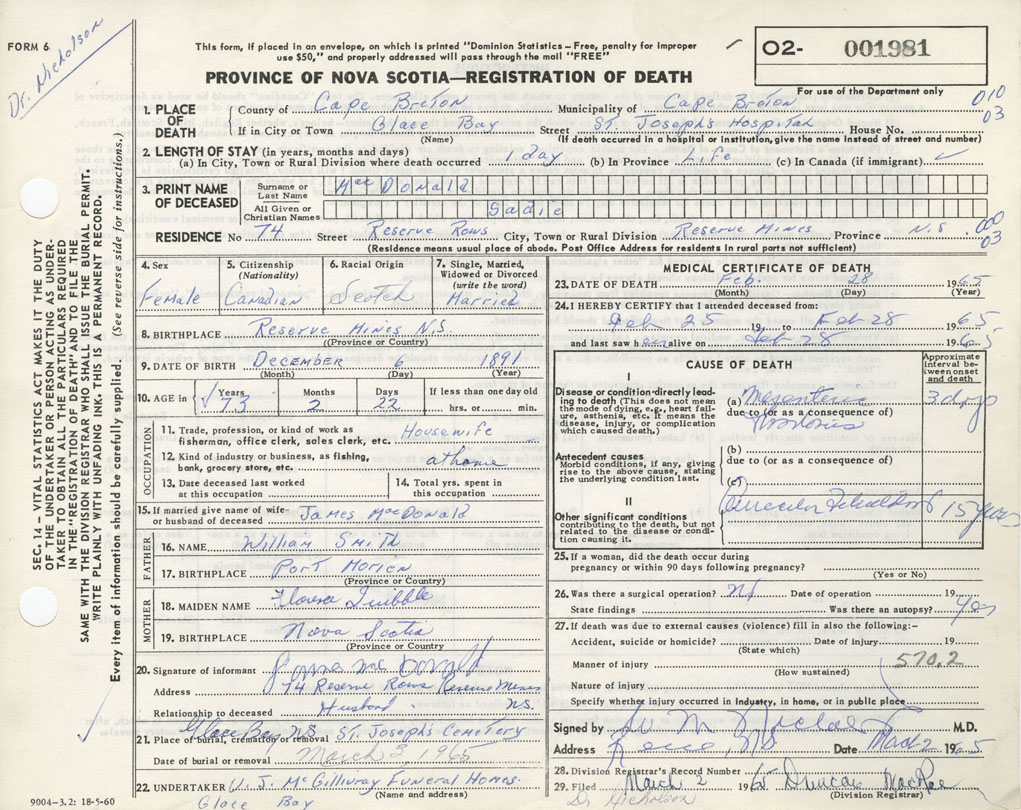 Dr. Nicholson
FORM 6
This form, if placed in an envelope, on which is printed "Dominion Statistics – Free, penalty for improper
use $50," and properly addressed will pass through the mail "FREE"
PROVINCE OF NOVA SCOTIA—REGISTRATION OF DEATH
02- 001981
For use of the Department only
010
03
1. PLACE OF DEATH
County of Cape Breton Municipality of Cape Breton
If in City or Town Glace Bay Street St. Joseph's Hospital House No.
(Name) (If death occurred in a hospital or institution, give the name instead of street and number)
2. LENGTH OF STAY (in years, months and days)
(a) In City, Town or Rural Division where death occurred 1 day (b) In Province Life (c) In Canada (if immigrant)
3. PRINT NAME OF DECEASED
Surname or Last Name MacDonald
All Given or Christian Names Sadie
RESIDENCE No 74 Street Reserve Rows City, Town or Rural Division Reserve Mines Province N.S
(Residence means usual place of abode. Post Office Address for residents in rural parts not sufficient)
00
03
4. Sex Female
5. Citizenship (Nationality) Canadian
6. Racial Origin Scotch
7. Single, Married, Widowed or Divorced (write the word) Married
8. BIRTHPLACE Reserve Mines N.S.
(Province or Country)
9. DATE OF BIRTH December 6 1891
(Month) (Day) (Year)
10. AGE in Years 73 Months 2 Days 22 If less than one day old hrs. or min.
OCCUPATION
11. Trade, profession, or kind of work as fisherman, office clerk, sales clerk, etc. Housewife
12. Kind of industry or business, as fishing, bank, grocery store, etc. at home
13. Date deceased last worked at this occupation
14. Total yrs. spent in this occupation
15. If married give name of wife or husband of deceased James MacDonald
FATHER
16. NAME William Smith
17. BIRTHPLACE Port Morien
(Province or Country)
MOTHER
18. MAIDEN NAME Flora
19. BIRTHPLACE Nova Scotia
(Province or Country)
20. Signature of informant
Address 74 Reserve Rows Reserve Mines N.S.
Relationship to deceased Husband
21. Place of burial, cremation or removal Glace Bay N.S St. Joseph's Cemetery
Date of burial or removal March 3, 1965
22. UNDERTAKER V. J. McGillivray Funeral Homes.
(Name and address)
Glace Bay
9004–3.2: 18-5-60
MEDICAL CERTIFICATE OF DEATH
23. DATE OF DEATH Feb. 28 1965
(Month) (Day) (Year)
24. I HEREBY CERTIFY that I attended deceased from:
Feb 25 19 to Feb 28 1965
and last saw her alive on Feb 28 1965
CAUSE OF DEATH
Approximate interval between onset and death
I
Disease or condition directly leading to death (This does not mean the mode of dying, e.g., heart failure, asthenia, etc. It means the disease, injury, or complication which caused death.)
(a) Mesenteric Thrombosis 3 days
due to (or as a consequence of)
Antecedent causes
Morbid conditions, if any, giving rise to the above cause, stating the underlying condition last.
(b)
due to (or as a consequence of)
(c)
II
Other significant conditions contributing to the death, but not related to the disease or condition causing it.
15 years
25. If a woman, did the death occur during pregnancy or within 90 days following pregnancy?
(Yes or No)
26. Was there a surgical operation? No Date of operation 19
State findings Was there an autopsy? Yes
27. If death was due to external causes (violence) fill in also the following:-
Accident, suicide or homicide? Date of injury 19
(State which)
Manner of injury 570.2
(How sustained)
Nature of injury
Specify whether injury occurred in Industry, in home, or in public place
Signed by M.D.
Address Date March 2 1965
28. Division Registrar's Record Number
29. Filed March 2 1965 Duncan MacRae
(Division Registrar)
Dr. Nicholson
SEC. 14 – VITAL STATISTICS ACT MAKES IT THE DUTY
OF THE UNDERTAKER OR PERSON ACTING AS UNDER-
TAKER TO OBTAIN ALL THE PARTICULARS REQUIRED
IN THE "REGISTRATION OF DEATH" AND TO FILE THE
SAME WITH THE DIVISION REGISTRAR WHO SHALL ISSUE THE BURIAL PERMIT.
WRITE PLAINLY WITH UNFADING INK. THIS IS A PERMANENT RECORD.
Every item of information should be carefully supplied. (See reverse side for instructions.)